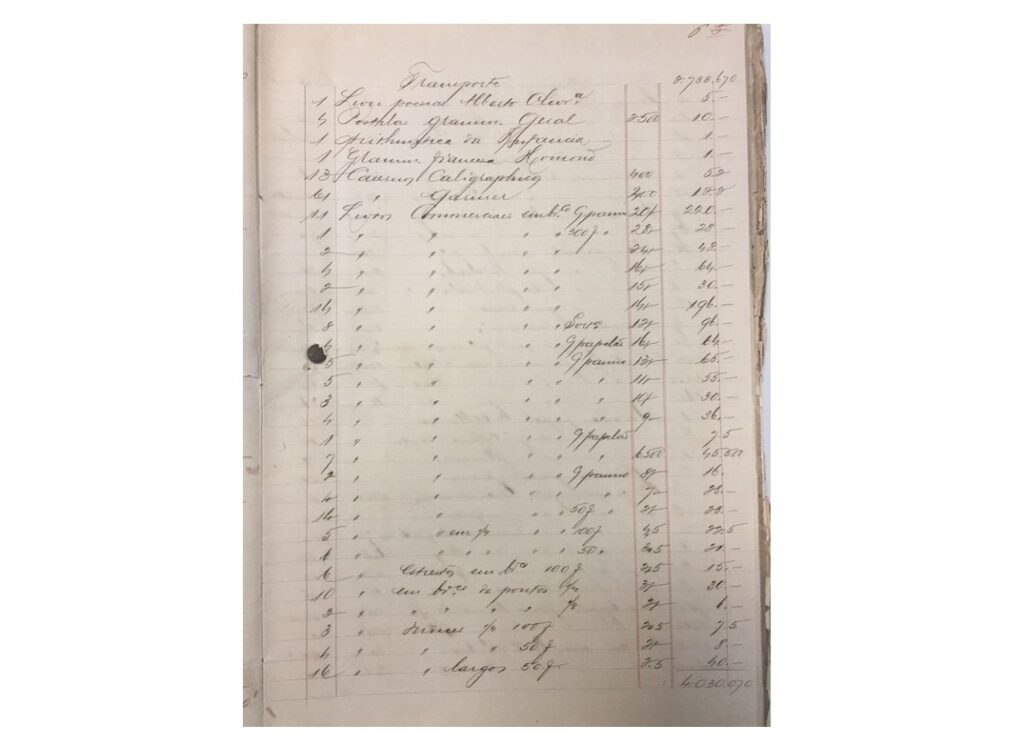 Transporte 2.738.670
1 Livro poesia Alberto Olivra 5.—
4 Postilas gramm. Geral 2500 10.—
1 Arithmetica da Infancia 1.—
1 Gramm. franceza 1.—
13 Cadernos Caligraphicos 400 5.2
61 " Garnier 200 12.2
11 Livros Commerciaes em bco G panno 20$ 220.—
1 " " " " 300 f " 28$ 28.—
2 " " " " 24$ 48.—
4 " " " " 16$ 64.—
2 " " " " 15$ 30.—
14 " " " " 14$ 196.—
8 " " " " 12$ 96.—
4 " " " " G papelão 16$ 64.—
5 " " " " G panno 13$ 65.—
5 " " " " " 11$ 55.—
3 " " " " " 10$ 30.—
4 " " " " " 9— 36.—
1 " " " " G papelão 7.5
7 " " " " " 6500 45.500
2 " " " " G panno 8$ 16.
4 " " " " " 7— 28.—
14 " " " " 50 f " 2$ 28.—
5 " " em 1/4 " " 100 f 4.5 22.5
6 " " " " " 50 " 3.5 21.—
6 " estreitos em bco 100 f 2.5 15.—
10 " em bco de pontos 1/4 3$ 30.—
3 " " " " " 1/8 2$ 6.—
3 " Indices 1/4 100 f 2.5 7.5
4 " " " 50 f 2$ 8.—
16 " " largos 50 f 2.5 40.—
4.030.070